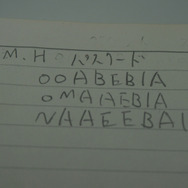 M.H パスワード
OOABEBIA
OMAAEBIA
NAAEEBAI